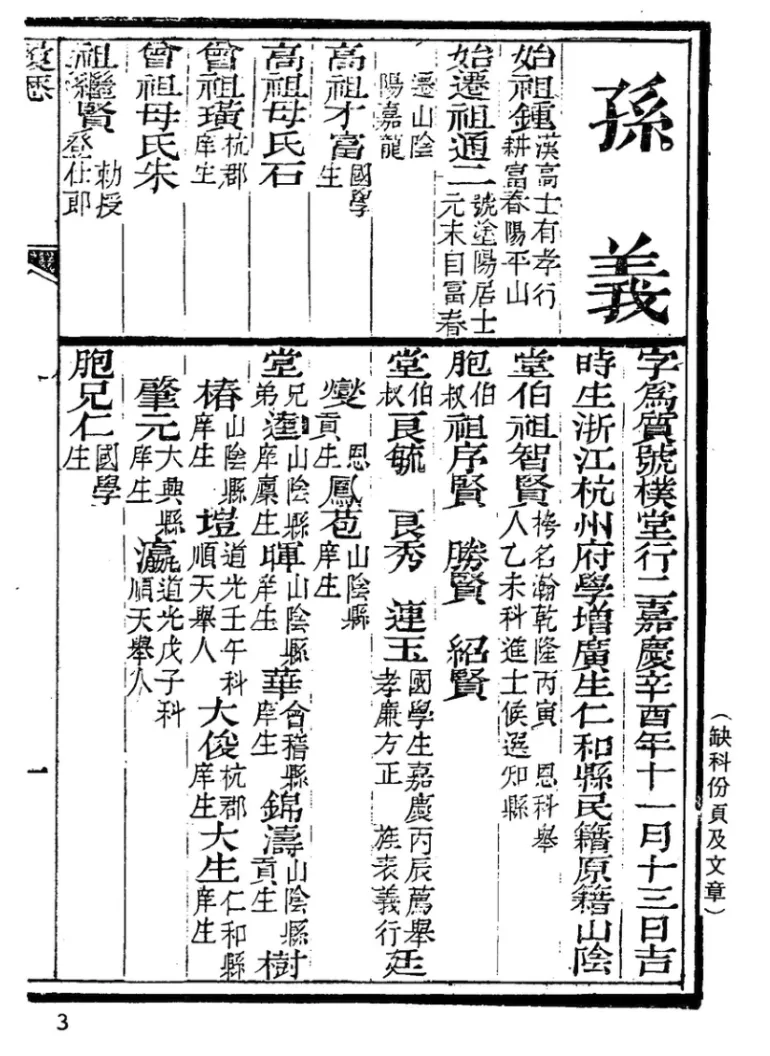 孫義
始祖鍾漢高士有孝行耕富春陽平山
始遷祖通二號塗陽居士元末自富春
遷山陰陽嘉龍
高祖才富國學生
高祖母氏石
曾祖璜杭郡庠生
曾祖母氏朱
祖繼賢勅授登仕郎
字爲質號樸堂行二嘉慶辛酉年十一月十三日吉
時生浙江杭州府學增廣生仁和縣民籍原籍山陰
堂伯祖智賢榜名瀚乾隆丙寅 恩科舉人乙未科進士候選知縣
胞伯叔祖序賢 勝賢 紹賢
堂伯叔良毓 良秀 連玉國學生嘉慶丙辰薦舉孝廉方正 旌表義行廷
燮恩貢生鳳苞山陰縣庠生
堂兄弟逵山陰縣庠廩生暉山陰縣庠生華會稽縣庠生錦濤山陰縣貢生樹
椿山陰縣庠生塏道光壬午科順天舉人大俊杭郡庠生大生仁和縣庠生
肇元大興縣庠生瀛道光戊子科順天舉人
胞兄仁國學生
一
(缺科份頁及文章)
3